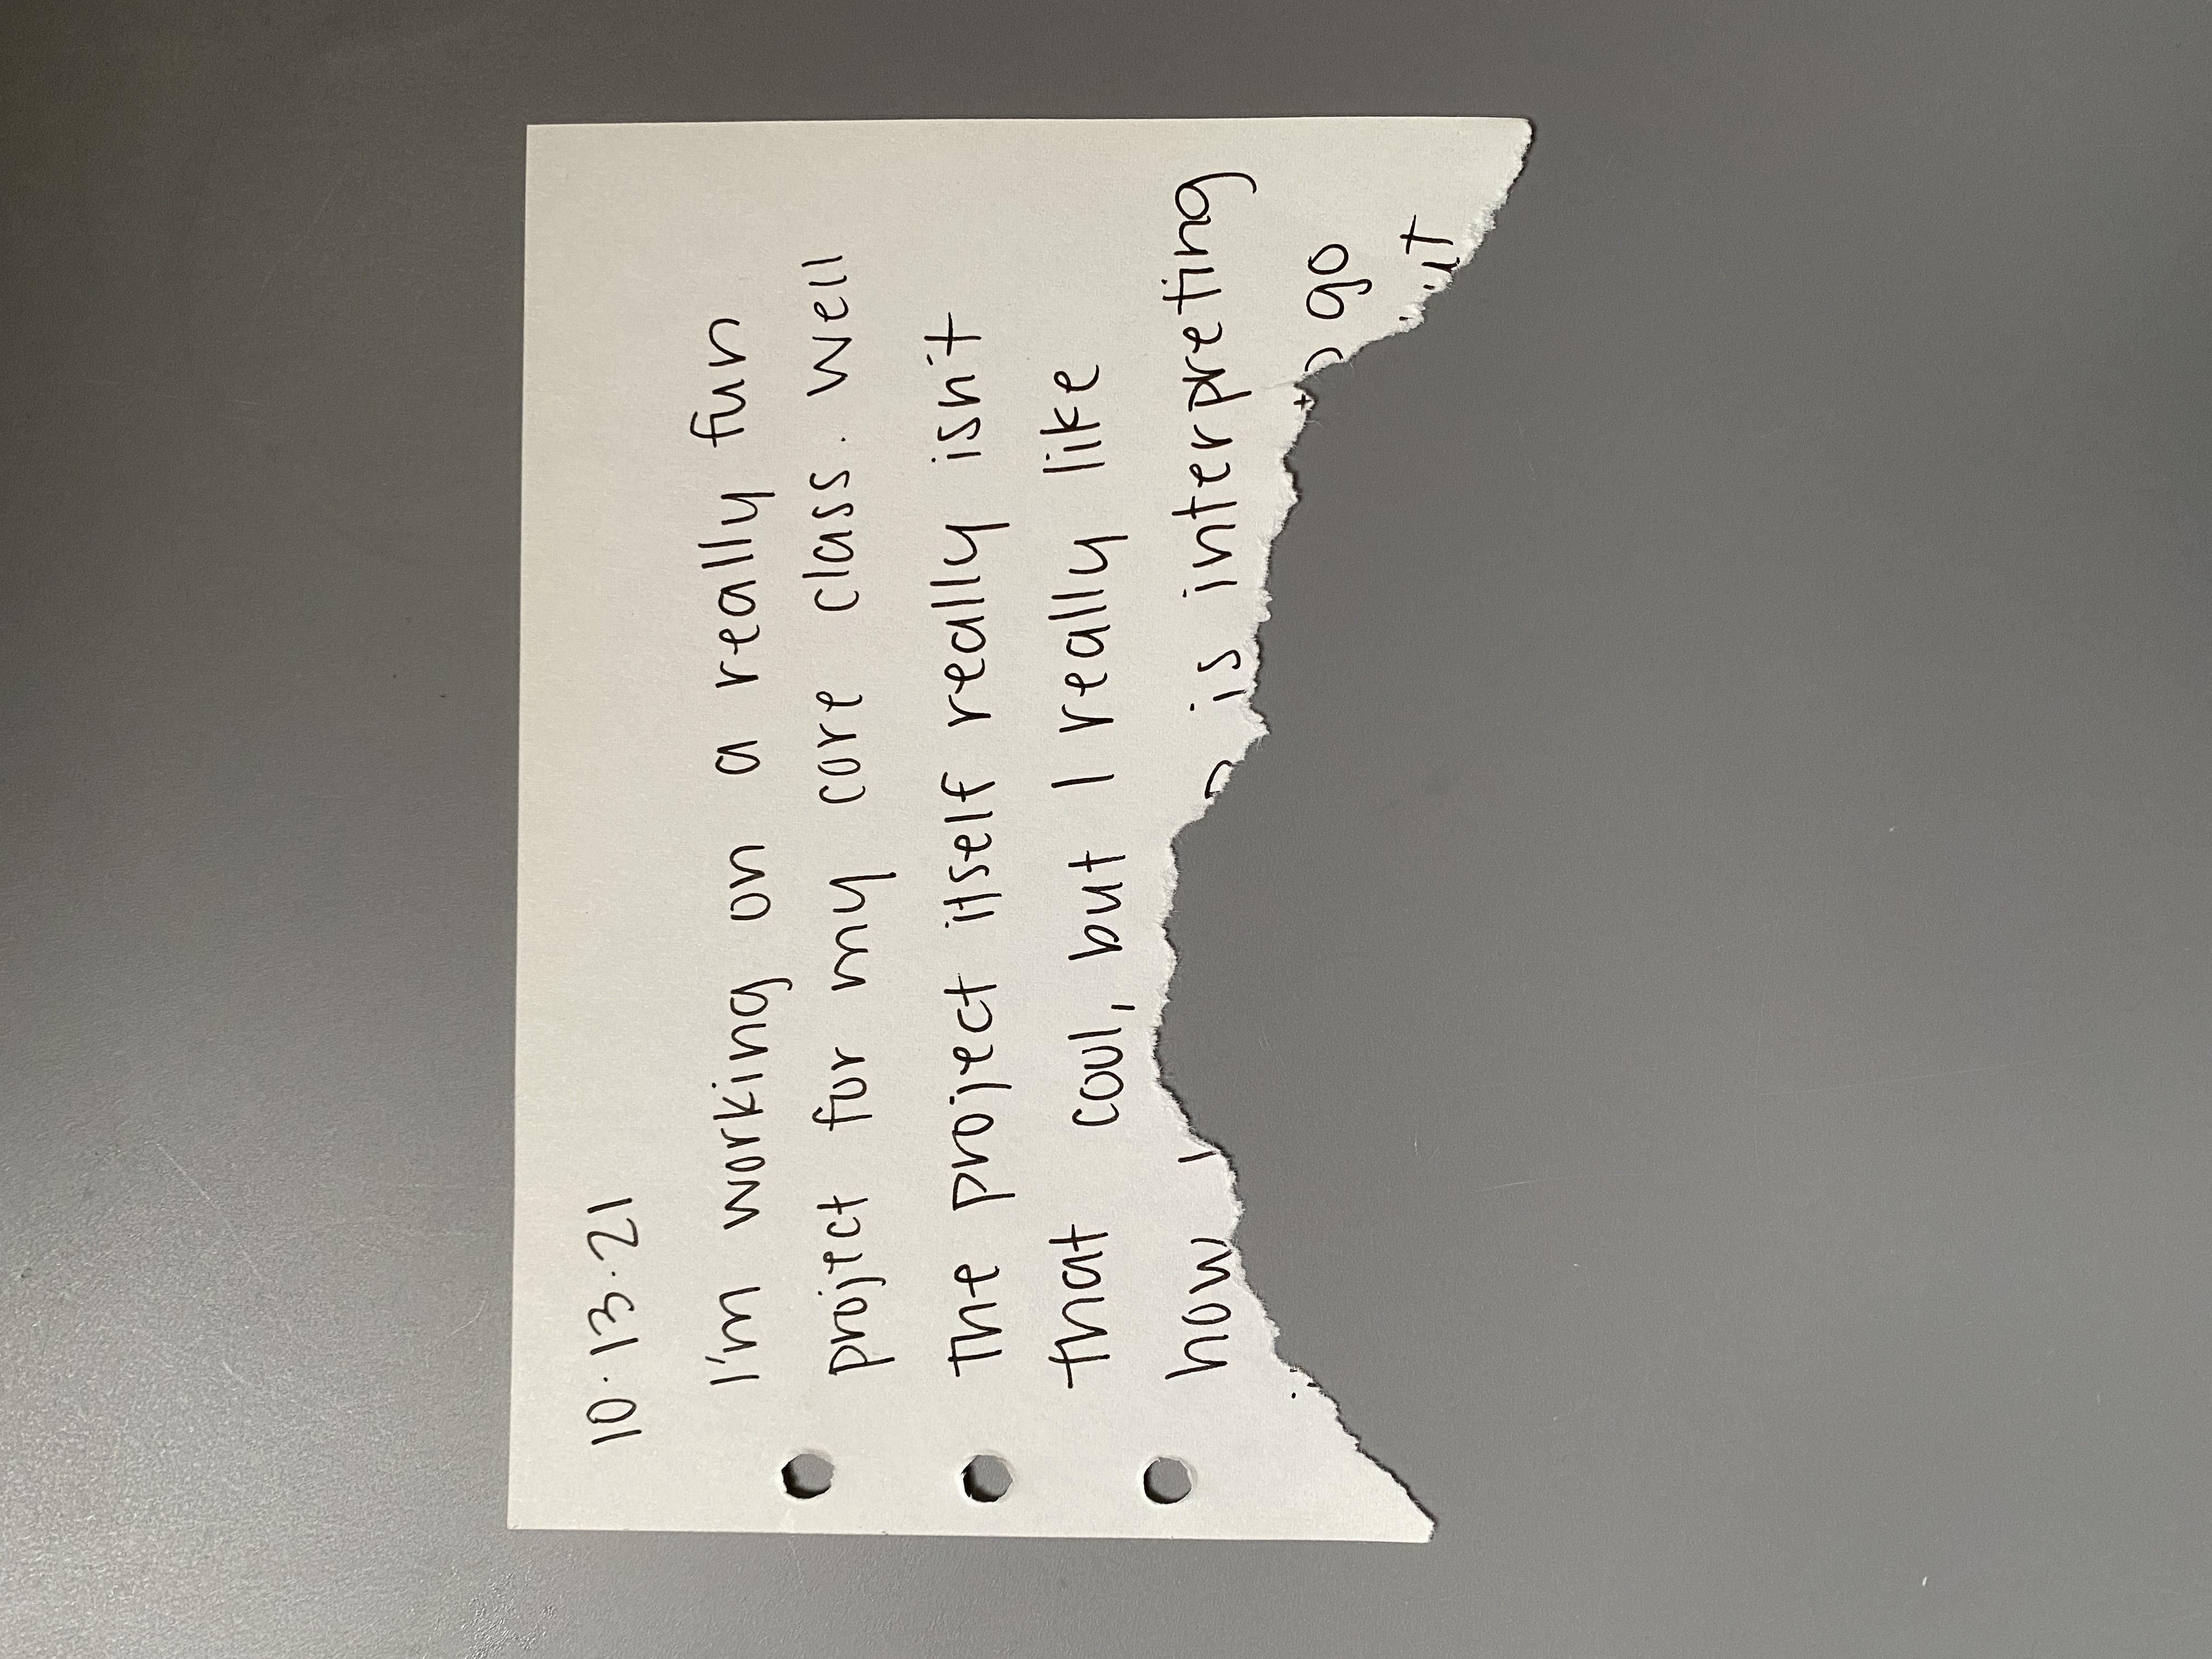 10.13.21
I'm working on a really fun
project for my core class. Well
the project itself really isn't
that cool, but I really like
how is interpreting
go